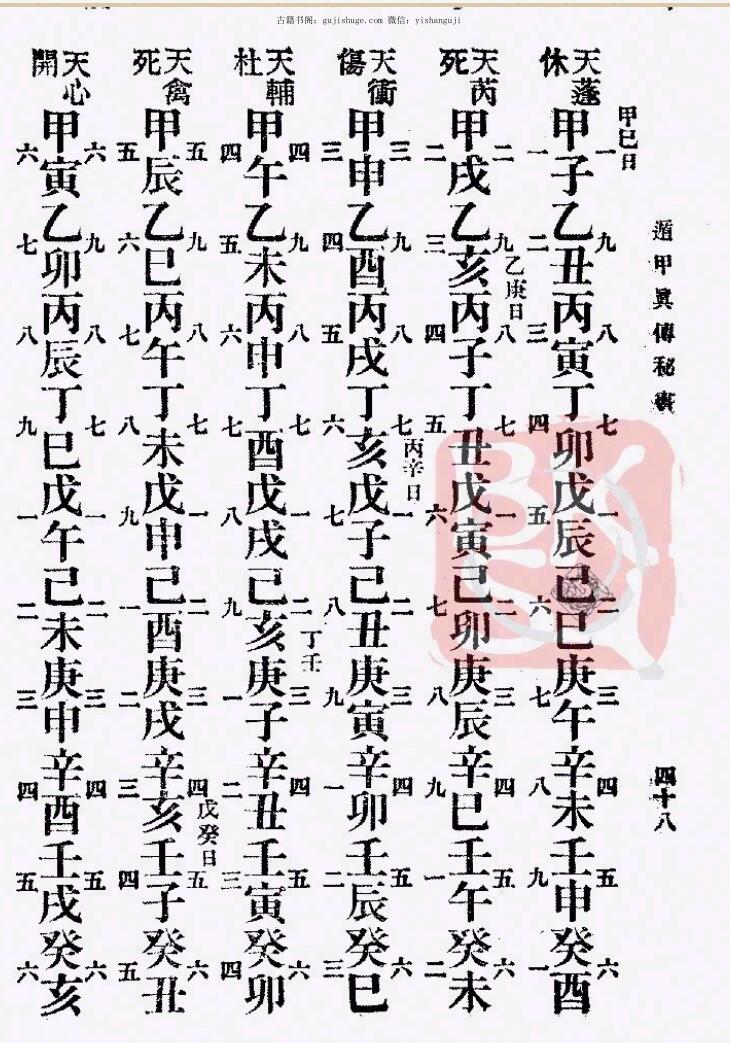 古籍书阁：gujishuge.com 微信：yishanguji
遁甲眞傳秘
四十八
甲巳日
天蓬
休
一九八七一二三四五六
甲子乙丑丙寅丁卯戊辰己巳庚午辛未壬申癸酉
一二三四五六七八九一
天芮
死
二九八七一二三四五六
乙庚日
甲戌乙亥丙子丁丑戊寅己卯庚辰辛巳壬午癸未
二三四五六七八九一二
天衝
傷
三九八七一二三四五六
丙辛日
甲申乙酉丙戌丁亥戊子己丑庚寅辛卯壬辰癸巳
三四五六七八九一二三
天輔
杜
四九八七一二三四五六
丁壬
甲午乙未丙申丁酉戊戌己亥庚子辛丑壬寅癸卯
四五六七八九一二三四
天禽
死
五九八七一二三四五六
戊癸日
甲辰乙巳丙午丁未戊申己酉庚戌辛亥壬子癸丑
五六七八九一二三四五
天心
開
六九八七一二三四五六
甲寅乙卯丙辰丁巳戊午己未庚申辛酉壬戌癸亥
六七八九一二三四五六